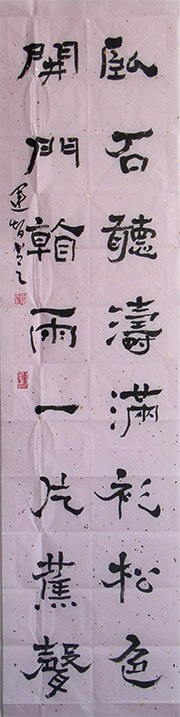 臥石聽濤滿衫松色
開門看雨一片蕉聲
運智書